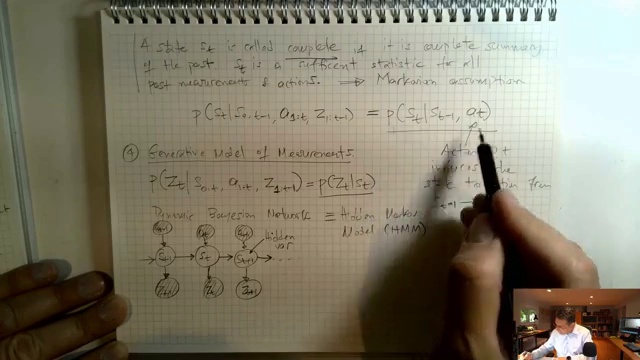 A state St is called complete if it is complete summary
of the past St is a sufficient statistic for all
past measurements & actions. ⟹ Markovian assumption
p(St|S0:t-1, a1:t, Z1:t-1) = p(St|St-1, at)
④ Generative Model of Measurements
p(Zt|S0:t, a1:t, Z1:t-1) = p(Zt|St)
the
state from
Dynamic Bayesian Network ≡ Hidden Markov
Model (HMM)
Hidden
var
St-1 St St+1 ...
Zt-1 Zt Zt+1